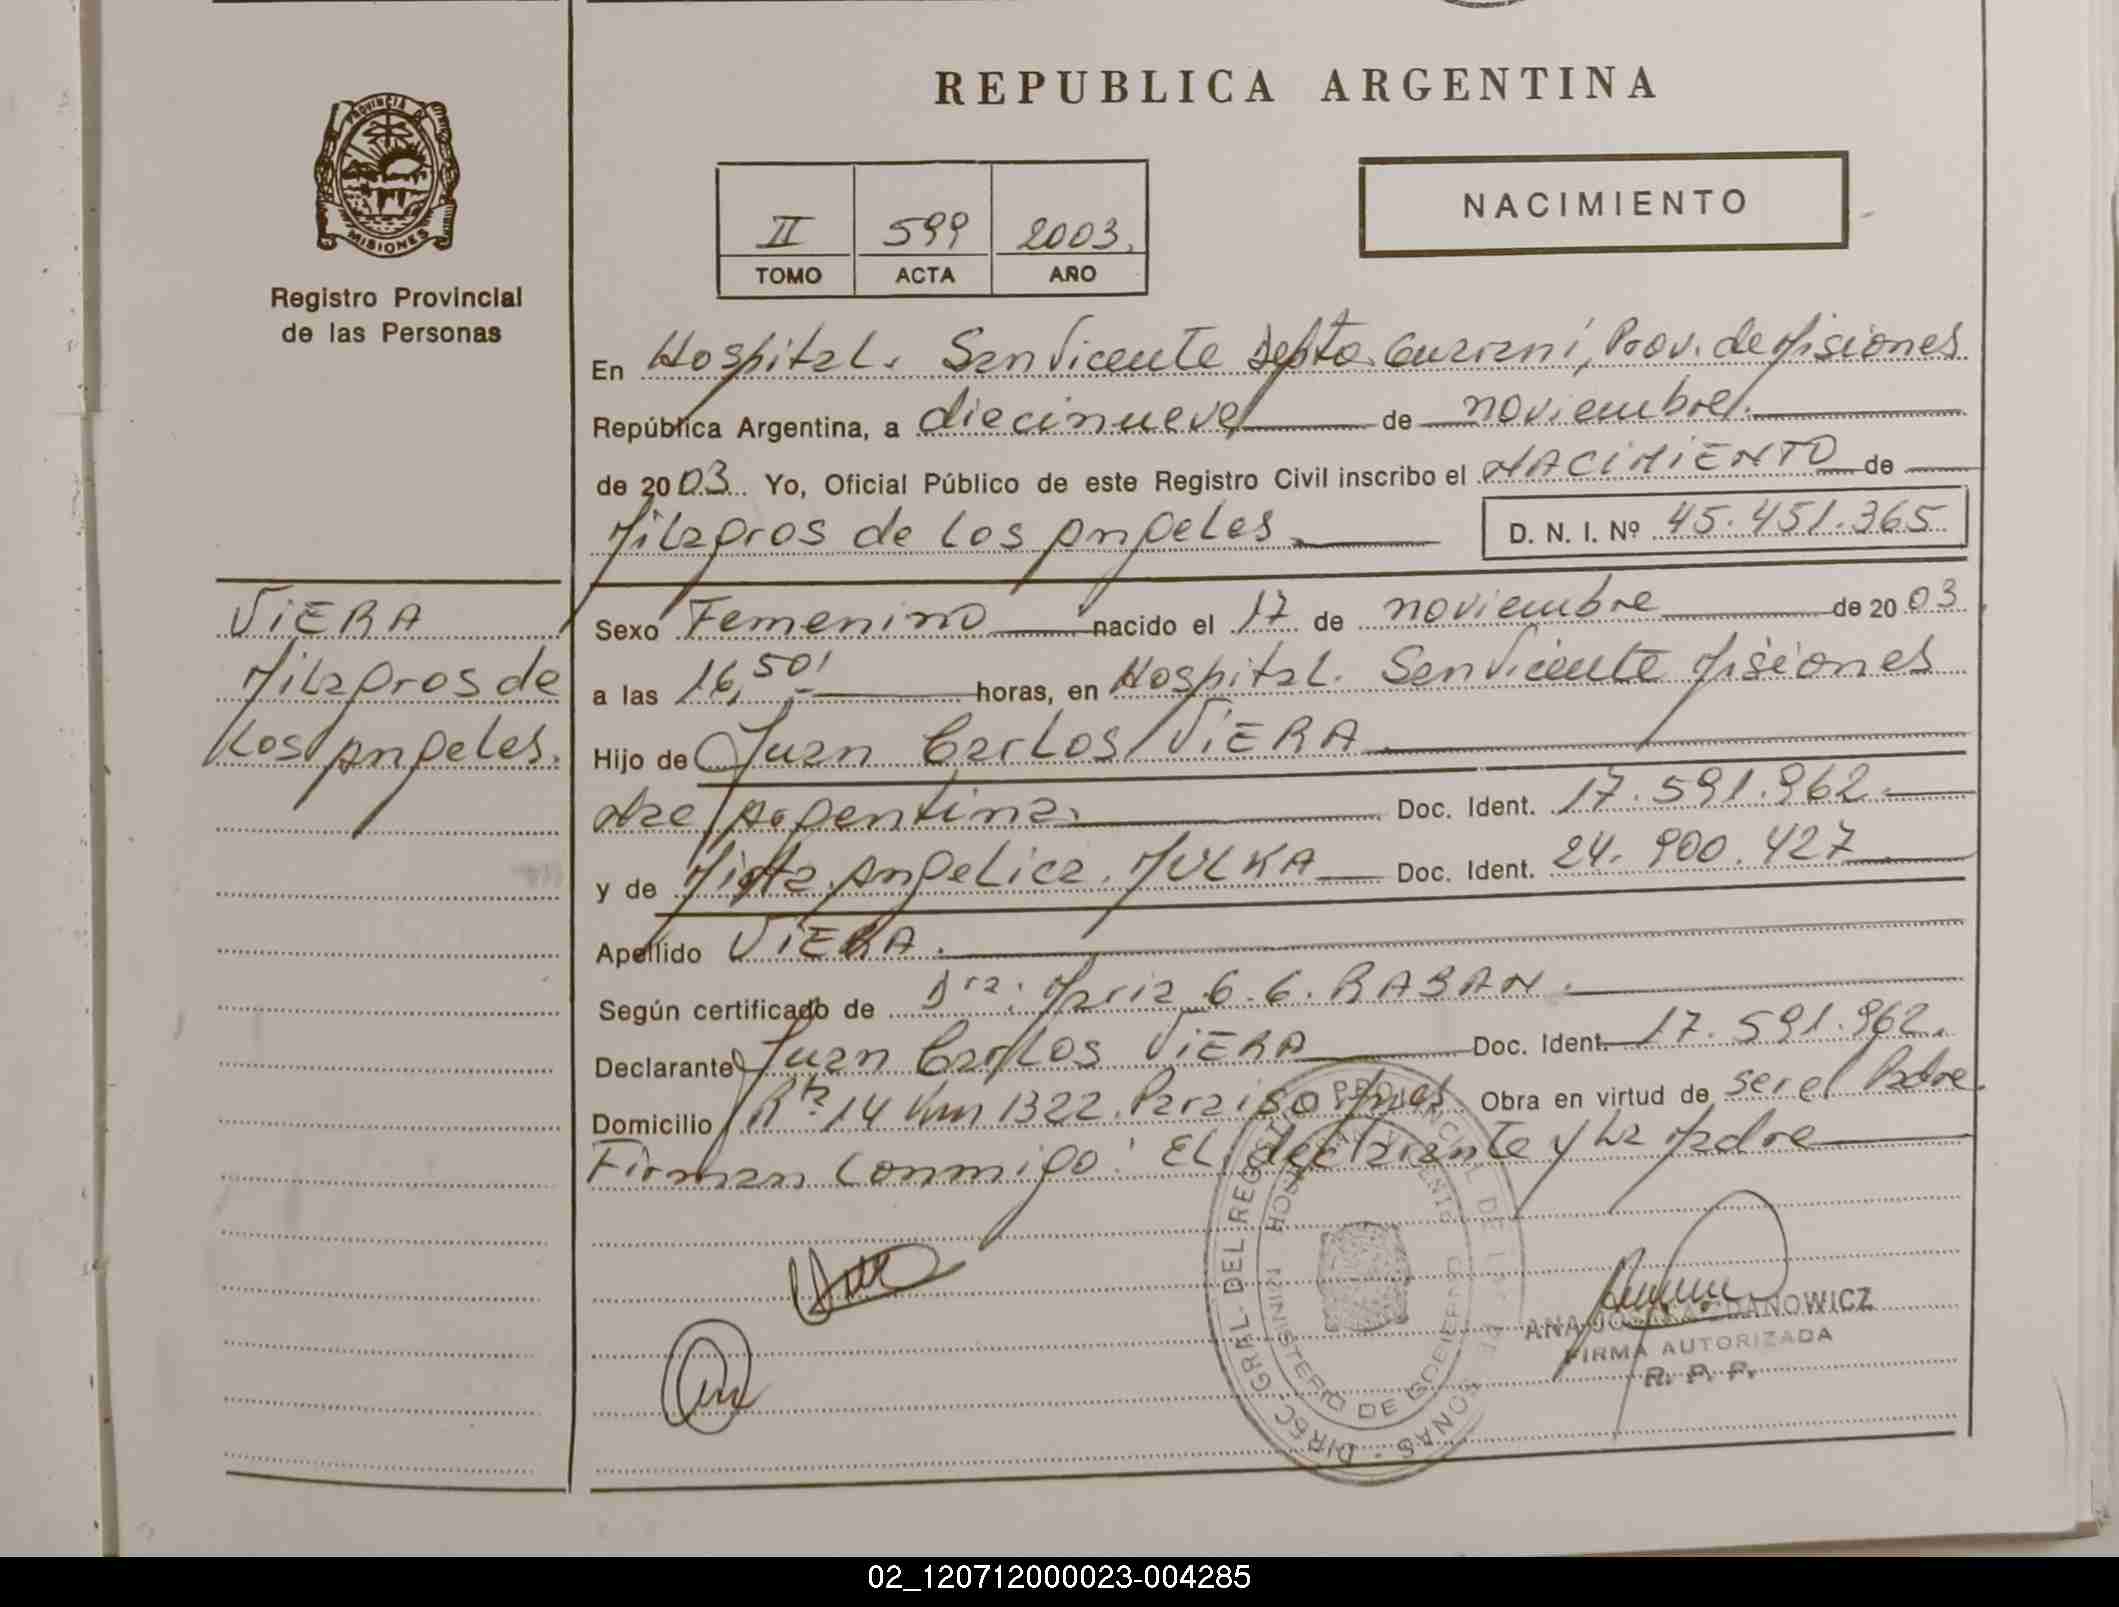 REPUBLICA ARGENTINA
PROVINCIA DE
MISIONES
Registro Provincial
de las Personas
II 599 2003
TOMO ACTA AÑO
NACIMIENTO
En Hospital. San Vicente Depto. Guaraní, Prov. de Misiones
República Argentina, a diecinueve de noviembre.
de 2003 Yo, Oficial Público de este Registro Civil inscribo el NACIMIENTO de
Milagros de los Angeles D. N. I. Nº 45.451.365
VIERA
Milagros de
los Angeles.
Sexo Femenino nacido el 17 de noviembre de 2003
a las 16,50' horas, en Hospital. San Vicente Misiones
Hijo de Juan Carlos VIERA
Argentina. Doc. Ident. 17.591.962.
y de Mirta Angelica. MULKA Doc. Ident. 24.900.427
Apellido VIERA.
Según certificado de Dra: Maria G.G. RABAN.
Declarante Juan Carlos VIERA Doc. Ident. 17.591.962.
Domicilio Rta 14 Km 1322. Paraiso Mnes Obra en virtud de ser el Padre.
Firman Conmigo: El declarante y La Madre
DIREC. GRAL. DEL REGISTRO PROVINCIAL DE LAS PERSONAS
MINISTERIO DE GOBIERNO
FIRMA AUTORIZADA
R. P. P.
02_120712000023-004285